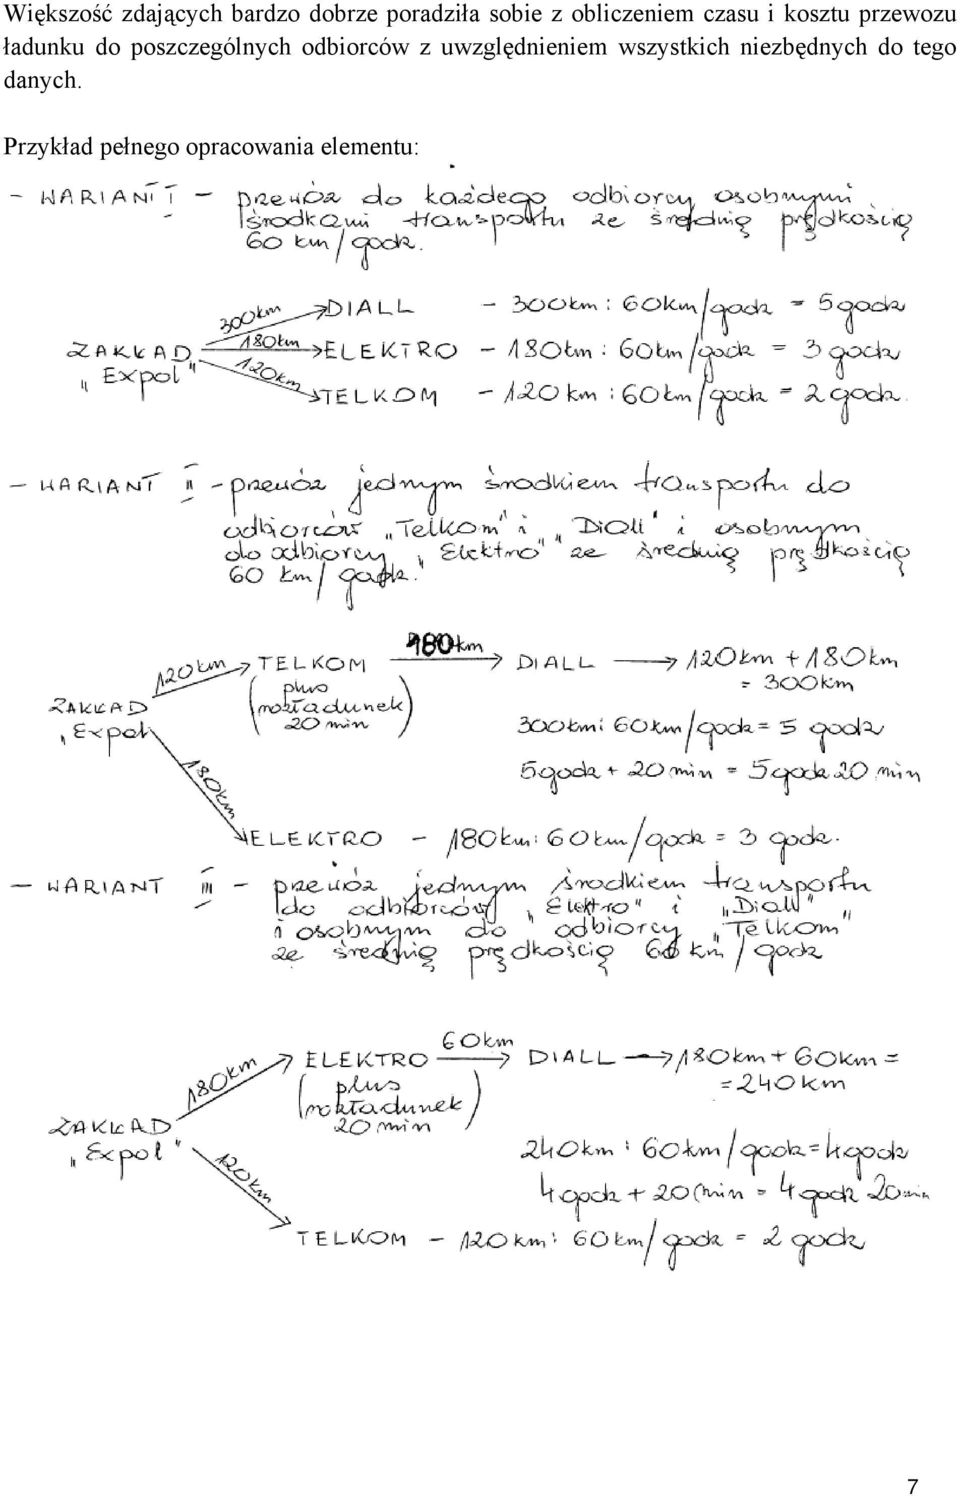 Większość zdających bardzo dobrze poradziła sobie z obliczeniem czasu i kosztu przewozu
ładunku do poszczególnych odbiorców z uwzględnieniem wszystkich niezbędnych do tego
danych.
Przykład pełnego opracowania elementu:
- WARIANT I - przewóz do każdego odbiorcy osobnymi
środkami transportu ze średnią prędkością
60 km/godz.
300km DIALL - 300km : 60km/godz = 5godz
ZAKŁAD 180km ELEKTRO - 180km : 60km/godz = 3 godz
"Expol" 120km TELKOM - 120km : 60km/godz = 2godz.
- WARIANT II - przewóz jednym środkiem transportu do
odbiorców "Telkom" i "Diall" i osobnym
do odbiorcy "Elektro" ze średnią prędkością
60 km/godz.
120km TELKOM 180km DIALL → 120km + 180km
(plus rozładunek 20 min) = 300km
ZAKŁAD "Expol" 300km : 60km/godz = 5 godz
5godz + 20min = 5godz 20 min
180km ELEKTRO - 180km : 60km/godz = 3 godz.
- WARIANT III - przewóz jednym środkiem transportu
do odbiorców "Elektro" i "Diall"
i osobnym do odbiorcy "Telkom"
ze średnią prędkością 60 km/godz
180km ELEKTRO 60km DIALL → 180km + 60km =
(plus rozładunek 20 min) = 240km
ZAKŁAD "Expol" 240km : 60km/godz = 4godz
4godz + 20min = 4godz 20min
120km TELKOM - 120km : 60km/godz = 2 godz
7